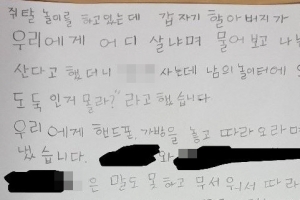 쥐탈 놀이를 하고있는데 갑자기 할아버지가
우리에게 어디 살냐며 물어보고 나는
산다고 했더니 사는데 남의 놀이터에 오
도둑인거 몰라?" 라고 했습니다
우리에게 핸드폰, 가방을 놓고 따라오라며
냈습니다. 와
은 말도 못하고 무서워서 따라